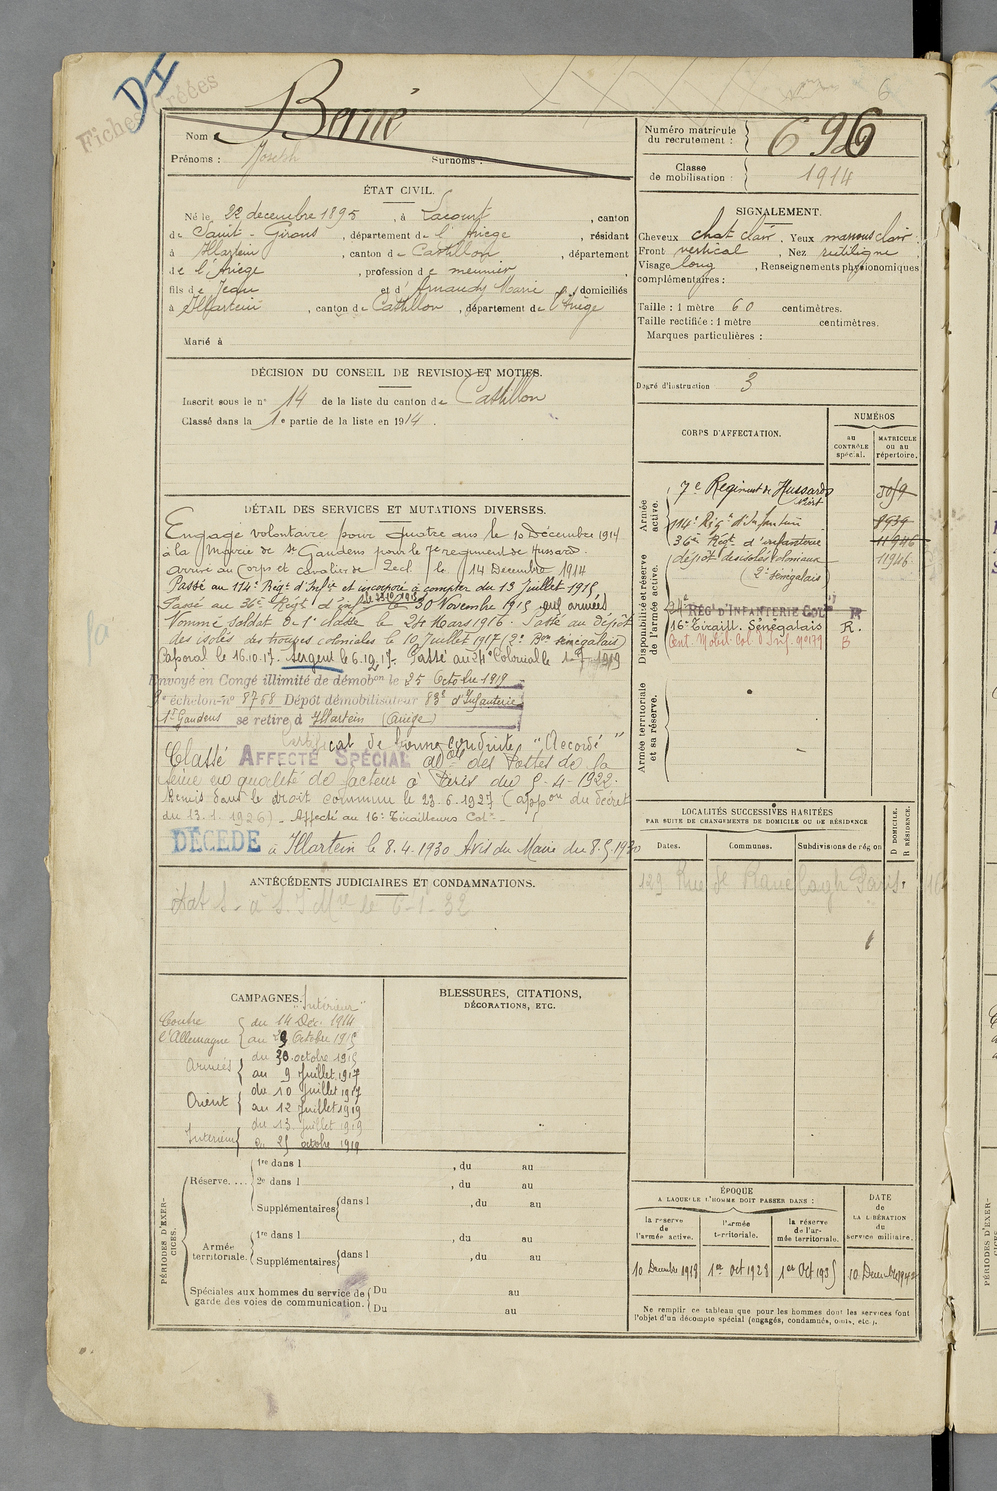 DI
Fiches créées
6
Nom : Berné
Prénoms : Joseph Surnoms :
Numéro matricule du recrutement : 696
Classe de mobilisation : 1914
ÉTAT CIVIL.
Né le 22 décembre 1895, à Lacourt, canton
de Saint-Girons, département de l'Ariège, résidant
à Illartein, canton de Castillon, département
de l'Ariège, profession de meunier
fils de Jean et d' Amaudy Marie, domiciliés
à Illartein, canton de Castillon, département de l'Ariège
Marié à
SIGNALEMENT.
Cheveux chat clair. Yeux marrons clair
Front vertical, Nez rectiligne
Visage long, Renseignements physionomiques
complémentaires :
Taille : 1 mètre 60 centimètres.
Taille rectifiée : 1 mètre centimètres.
Marques particulières :
Degré d'instruction 3
DÉCISION DU CONSEIL DE REVISION ET MOTIFS.
Inscrit sous le n° 14 de la liste du canton de Castillon
Classé dans la 1e partie de la liste en 1914.
DÉTAIL DES SERVICES ET MUTATIONS DIVERSES.
Engagé volontaire pour quatre ans le 10 Décembre 1914
à la Mairie de St Gaudens pour le 7e régiment de Hussards.
Arrivé au Corps et cavalier de 2e cl le 14 Décembre 1914
Passé au 114e Régt d'Infie et incorporé à compter du 13 Juillet 1915
Passé au 36e Régt d'infie le 30 Novembre 1915 aux armées
Nommé soldat de 1e classe le 24 Mars 1916. Passé au dépôt
des isolés des troupes coloniales le 10 Juillet 1917 (2e Bon sénégalais)
Caporal le 16.10.17. Sergent le 6.12.17. Passé au 24e Colonial le 1919
Envoyé en Congé illimité de démobon le 25 Octobre 1919
échelon n° 8768 Dépôt démobilisateur 83e d'Infanterie
St Gaudens se retire à Illartein (Ariège)
Certificat de bonne conduite "Accordé"
Classé AFFECTÉ SPÉCIAL adon des Postes de la
Seine en qualité de facteur à Paris du 5-4-1922.
Remis dans le droit commun le 23.6.1927 (appon du décret
du 13.1.1926). Affecté au 16e Tirailleurs Col
DÉCÉDÉ à Illartein le 8.4.1930 Avis du Maire du 8.5.1930
CORPS D'AFFECTATION.
NUMÉROS
au CONTRÔLE spécial.
MATRICULE ou au répertoire.
Armée active.
7e Régiment de Hussards
114e Régt d'Infanterie
36e Régt d'infanterie 11946
dépôt des isolés coloniaux 11946
(2e sénégalais)
Disponibilité et réserve de l'armée active.
24e RÉGt D'INFANTERIE COLle R
16e Tiraill. Sénégalais R.
Cent. Mobil. Col. d'Inf. n° 179 B
Armée territoriale et sa réserve.
ANTÉCÉDENTS JUDICIAIRES ET CONDAMNATIONS.
LOCALITÉS SUCCESSIVES HABITÉES
PAR SUITE DE CHANGEMENTS DE DOMICILE OU DE RÉSIDENCE
Dates. Communes. Subdivisions de région
D DOMICILE.
R RÉSIDENCE.
129 Rue de Ranelagh Paris. 16
CAMPAGNES. "Intérieur"
Contre l'Allemagne du 14 Déc. 1914
au 29 Octobre 1915
Armées du 30 octobre 1915
au 9 Juillet 1917
Orient du 10 Juillet 1917
au 12 Juillet 1919
Intérieur du 13 Juillet 1919
au 25 octobre 1919
BLESSURES, CITATIONS,
DÉCORATIONS, ETC.
PÉRIODES D'EXERCICES.
Réserve.... 1re dans l , du au
2e dans l , du au
Supplémentaires dans l , du au
Armée territoriale. 1re dans l , du au
Supplémentaires dans l , du au
Spéciales aux hommes du service de garde des voies de communication. Du au
Du au
ÉPOQUE
A LAQUELLE L'HOMME DOIT PASSER DANS :
la réserve de l'armée active.
l'armée territoriale.
la réserve de l'armée territoriale.
DATE de LA LIBÉRATION du service militaire.
10 Décembre 1918
1er Oct 1928
1er Oct 1935
10 Décembre 1942
Ne remplir ce tableau que pour les hommes dont les services font
l'objet d'un décompte spécial (engagés, condamnés, omis, etc.).